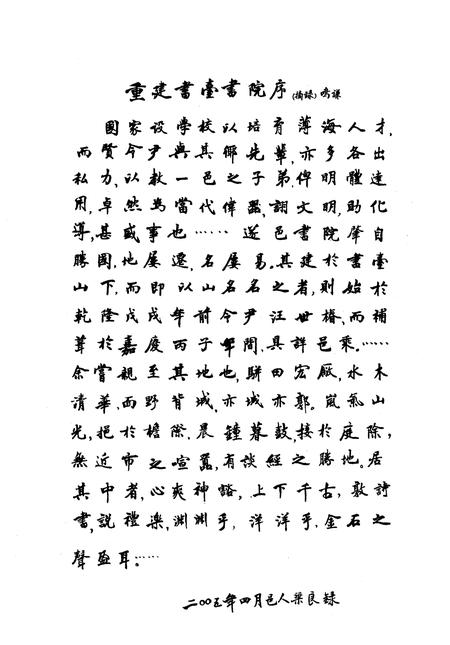 重建书臺書院序(摘録)
國家设學校以培育薄海人才,
而賢令尹與其鄉先輩,亦多各出
私力,以教一邑之子弟,俾明體達
用,卓然為當代偉器,詡文明,助化
導,甚盛事也……遂邑書院肇自
勝國,地屢遷,名屢易。其建於書臺
山下,而即以山名名之者,則始於
乾隆戊戌年前令尹汪世椿,而補
葺於嘉慶丙子年間,具詳邑乘。……
余嘗親至其地也,駢田宏厰,水木
清華,而野背城,亦城亦郭。嵐氣山
光,挹於檐際,晨鐘暮鼓,接於庭除,
無近市之喧囂,有談經之勝地。居
其中者,心爽神谿,上下千古,敦詩
書,説禮樂,淵淵乎,洋洋乎,金石之
聲盈耳。……
二00五年四月邑人梁良録